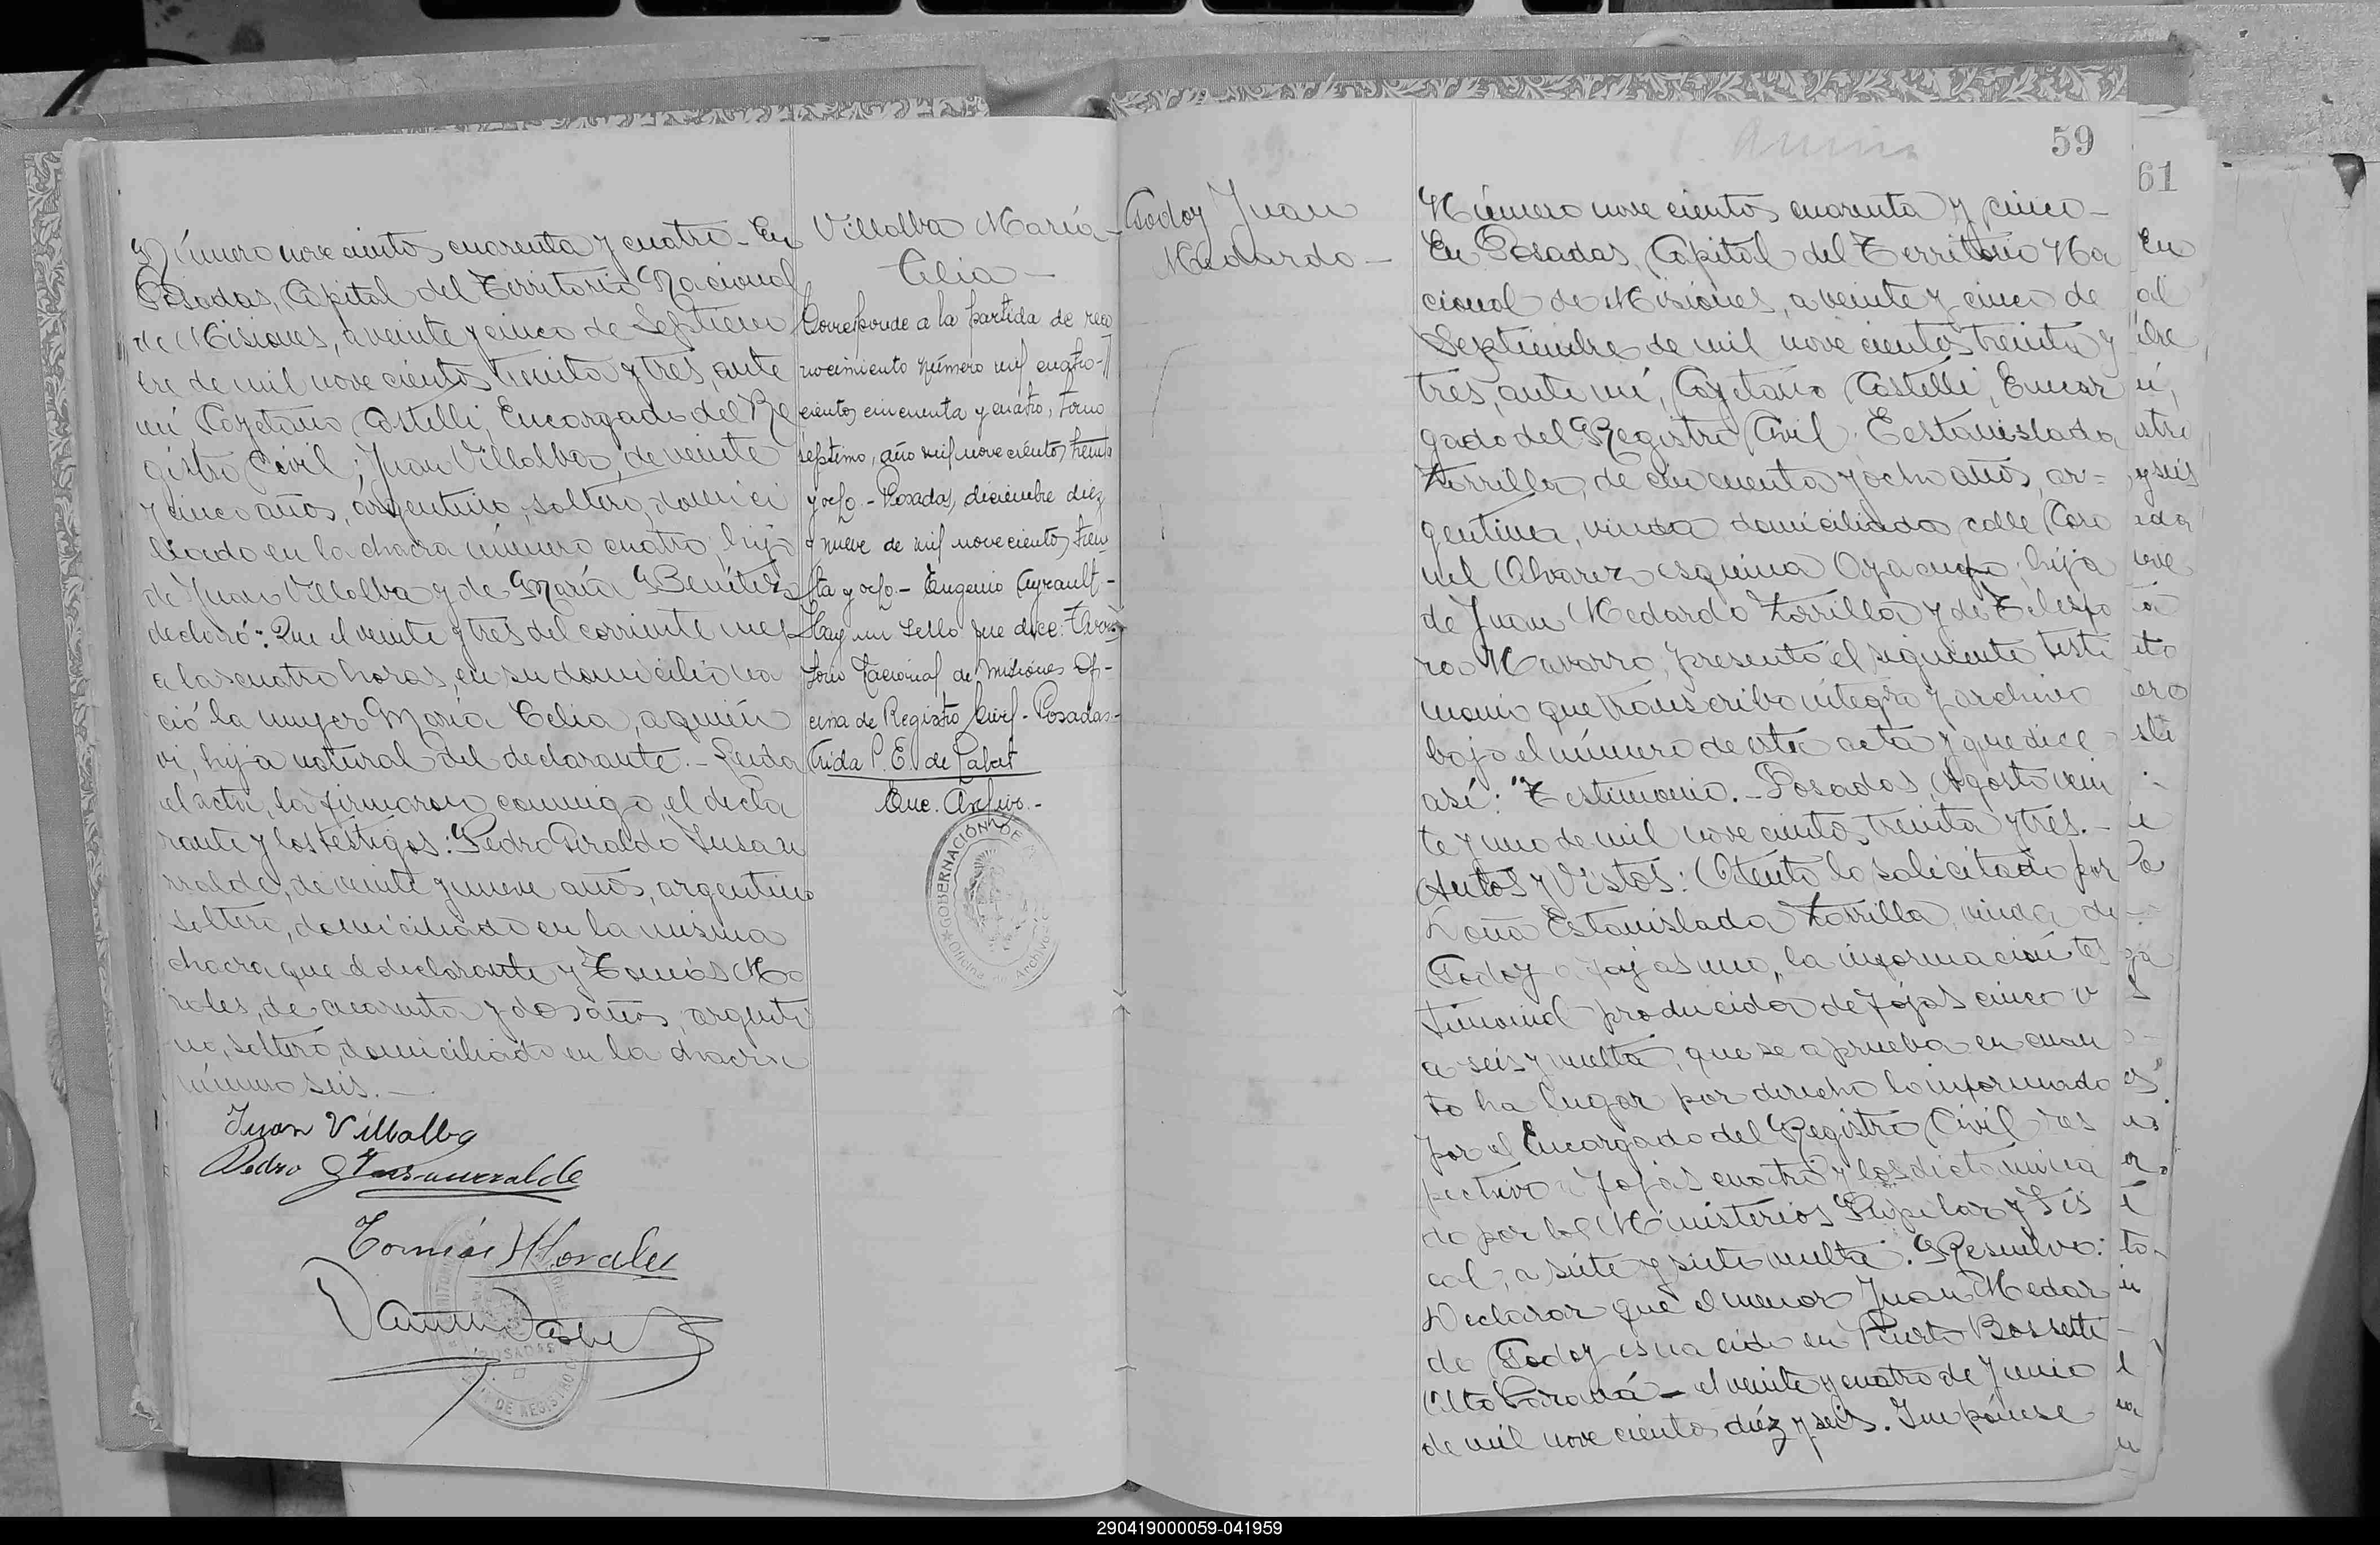 Número novecientos cuarenta y cuatro - En
Posadas, Capital del Territorio Nacional
de Misiones, a veinte y cinco de Septiem
bre de mil novecientos treinta y tres, ante
mí, Cayetano Castelli, Encargado del Re
gistro Civil; Juan Villalba, de veinte
y cinco años, argentino, soltero, domici
liado en la chacra número cuatro, hijo
de Juan Villalba y de María Benítez
declaró: Que el veinte y tres del corriente mes
a las cuatro horas, en su domicilio na
ció la mujer María Celia, a quién
vi, hija natural del declarante. - Leida
el acta, la firmaron conmigo, el decla
rante y los testigos: Pedro Giraldo Insau
rralde, de veinte y nueve años, argentino
soltero, domiciliado en la misma
chacra que el declarante y Tomás Mo
rales, de cuarenta y dos años, argenti
no, soltero, domiciliado en la chacra
número seis. -
Juan Villalba
Pedro G Insaurralde
Tomás Morales
Villalba María
Celia -
Corresponde a la partida de reco
nocimiento número mil cuatro-
cientos cincuenta y cuatro, tomo
séptimo, año mil novecientos treinta
y ocho. - Posadas, diciembre diez
y nueve de mil novecientos trein
ta y ocho. - Eugenio Ayrault -
Hay un sello que dice: Territo
torio Nacional de Misiones Ofi-
cina de Registro Civil - Posadas -
Aida P. E. de Labat
Enc. Archivo. -
GOBERNACIÓN DE M
Oficina de Archivo
POSADAS
DE REGISTRO
Godoy Juan
Medardo -
59
Número novecientos cuarenta y cinco -
En Posadas, Capital del Territorio Na
cional de Misiones, a veinte y cinco de
Septiembre de mil novecientos treinta y
tres, ante mí, Cayetano Castelli, Encar
gado del Registro Civil. Estanislada
Zorrilla, de cincuenta y ocho años, ar=
gentina, viuda domiciliada calle Coro
nel Alvarez esquina Ayacucho; hija
de Juan Medardo Zorrilla y de Telesfo
ra Navarro, presentó el siguiente testi
monio que transcribo integro y archivo
bajo el número de esta acta y que dice
así: "Testimonio. - Posadas, Agosto vein
te y uno de mil novecientos treinta y tres. -
Autos y Vistos: Atento lo solicitado por
Doña Estanislada Zorrilla, viuda de
Godoy a fojas uno, la información tes
timonial producida de fojas cinco v
a seis y vuelta, que se aprueba en cuan
to ha lugar por derecho lo informado
por el Encargado del Registro Civil res
pectivo a fojas cuatro y los dictamina
do por los Ministerios Pupilar y Fis
cal, a siete y siete vuelta. Resuelvo:
Declarar que el menor Juan Medar
do Godoy es nacido en Puerto Bossetti
Alto Paraná - el veinte y cuatro de Junio
de mil novecientos diéz y seis. Impónese
61
En
al
bre
mí,
istro
y seis
290419000059-041959